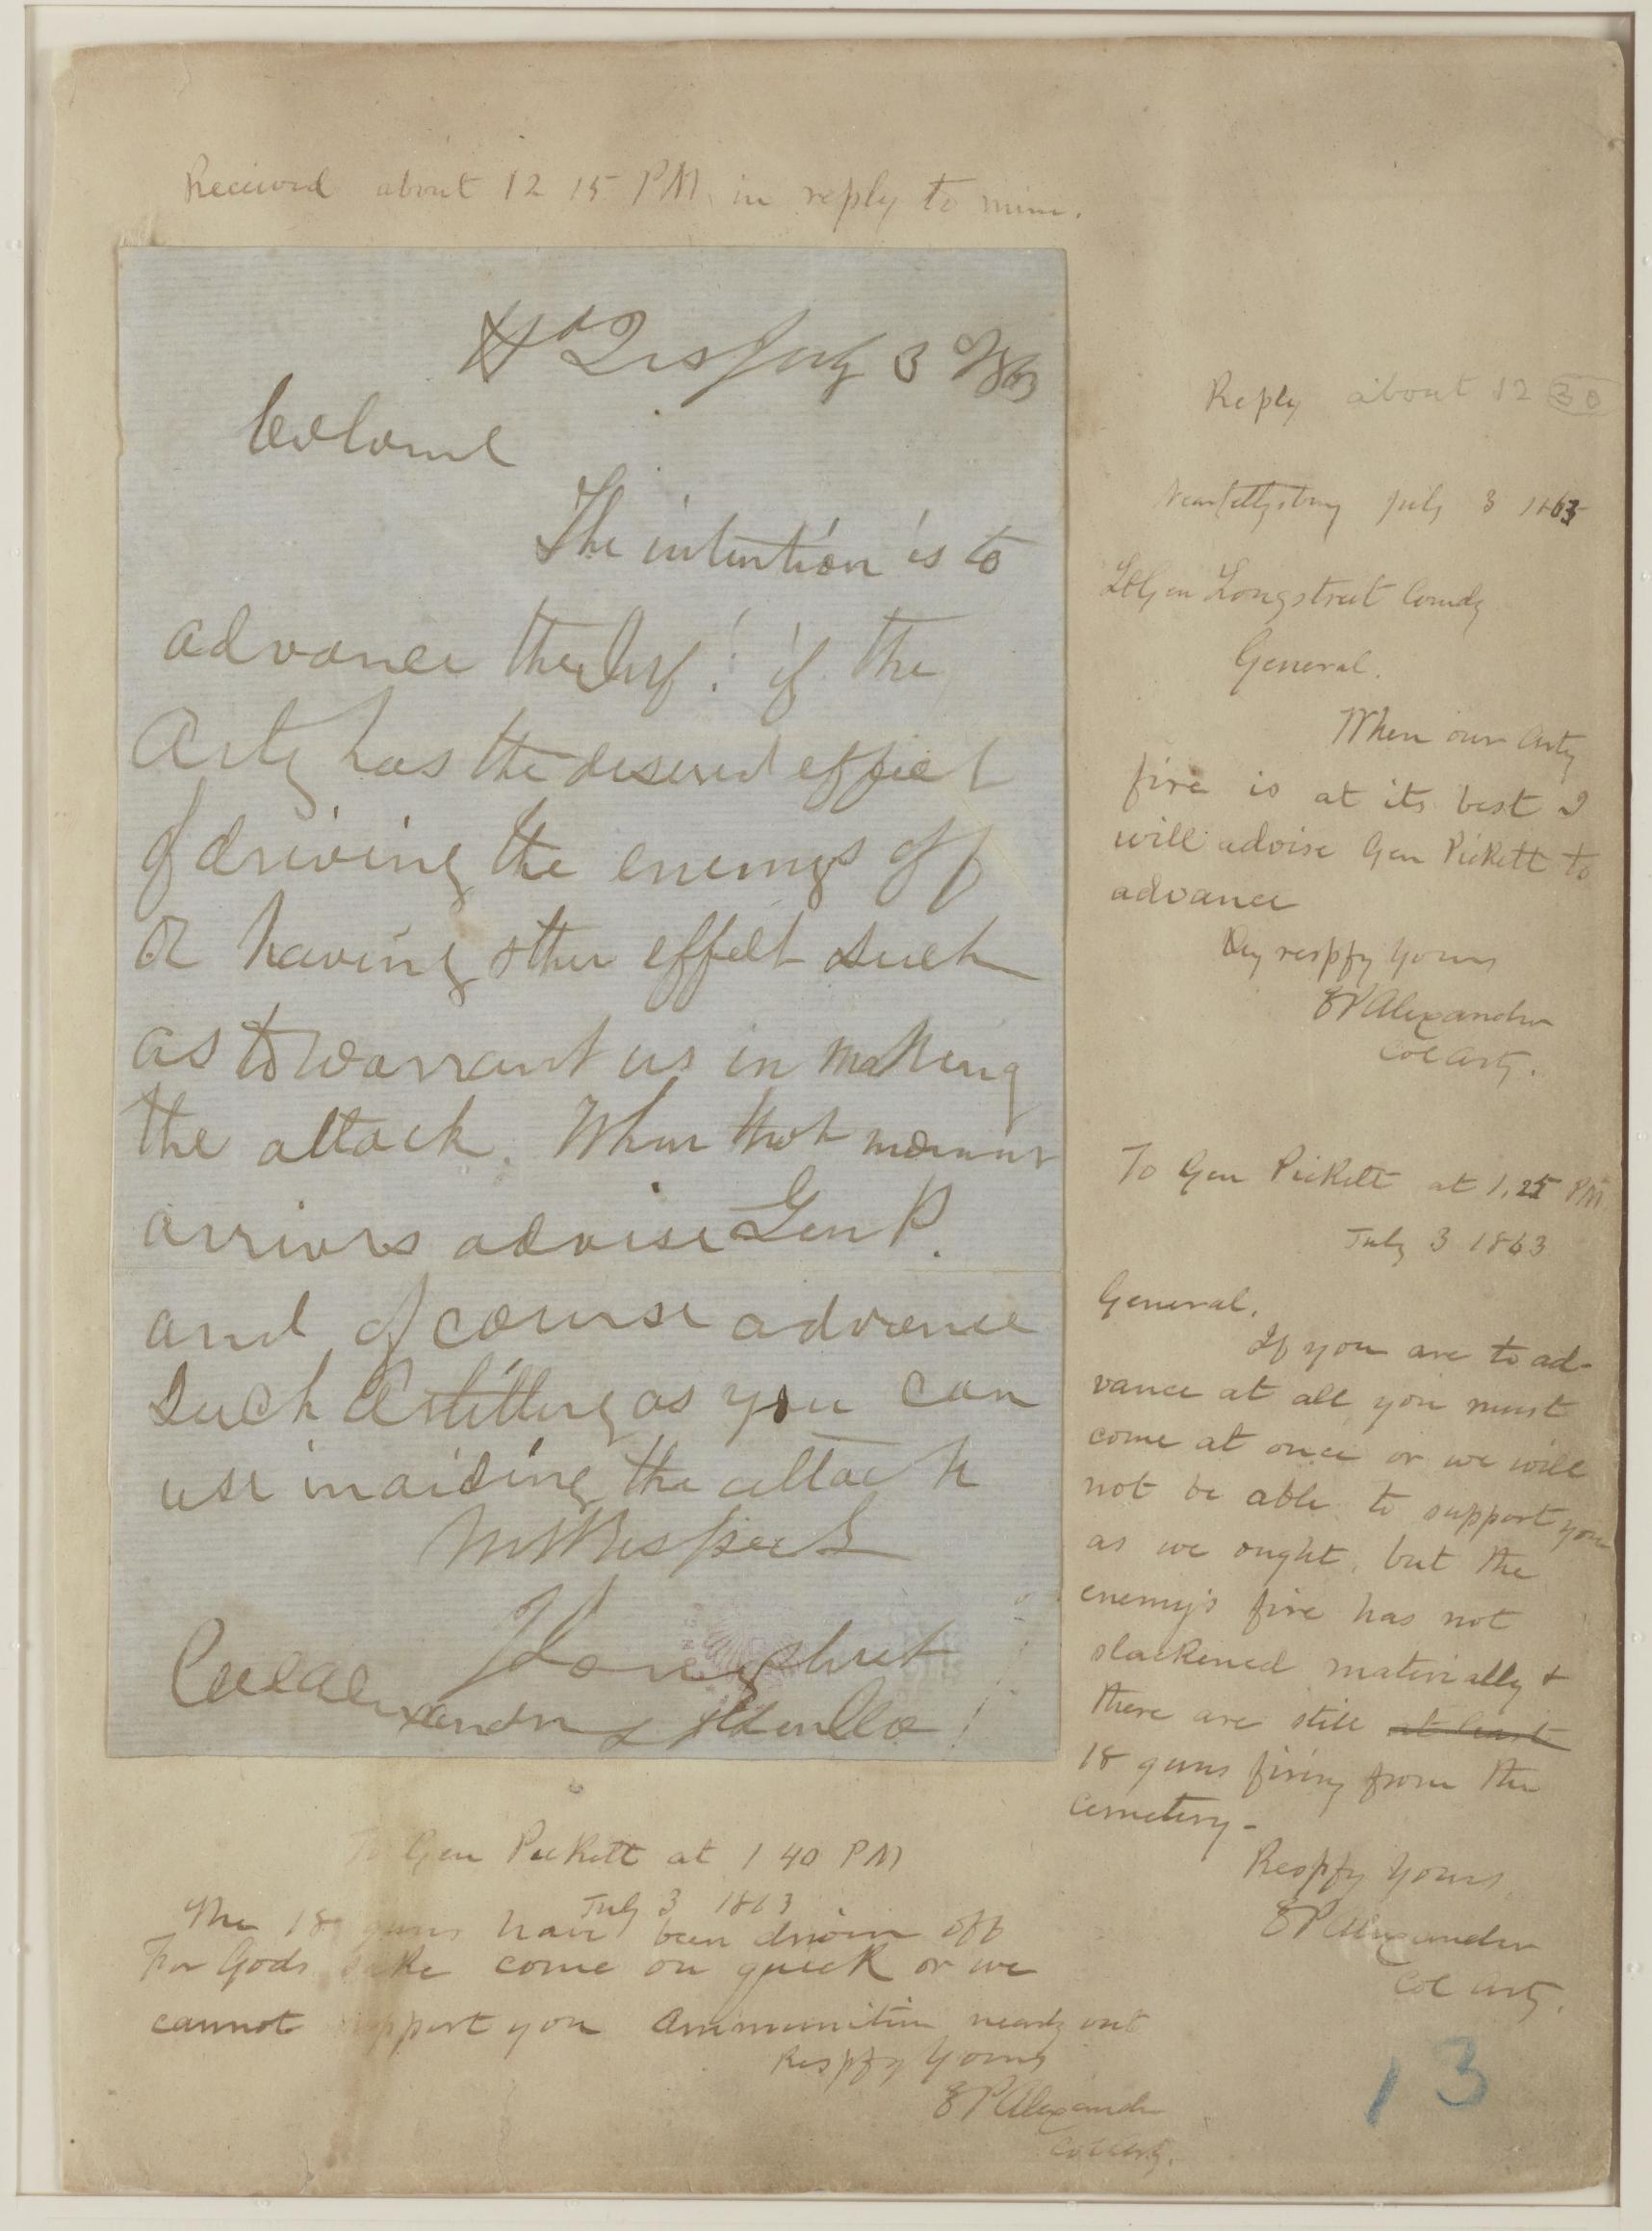 Received about 12 15 PM in reply to mine.
Hd Qrs July 3rd /63
Colonel
The intention is to
advance the Inf. if the
Arty has the desired effect
of driving the enemys off
or having other effect such
as to warrant us in making
the attack. When that moment
arrives advise Gen P.
and of course advance
such Artillery as you can
use in aiding the attack
Respect
J Longstreet
Col Alexander Lt Gen
Reply about 12 30
Near Gettysburg July 3 1863
Lt Gen Longstreet Comdg
General.
When our Arty
fire is at its best I
will advise Gen Pickett to
advance
respfy yours
EPAlexander
Col Arty.
To Gen Pickett at 1.25 PM
July 3 1863
General.
If you are to ad-
vance at all you must
come at once or we will
not be able to support you
as we ought, but the
enemy's fire has not
slackened materially &
there are still at least
18 guns firing from the
cemetery-
Respfy yours
EPAlexander
Col Arty.
To Gen Pickett at 1 40 PM
July 3 1863
The 18 guns have been driven off
For Gods sake come on quick or we
cannot support you Ammunition nearly out
Respfy yours
EPAlexander
Col Arty.
13